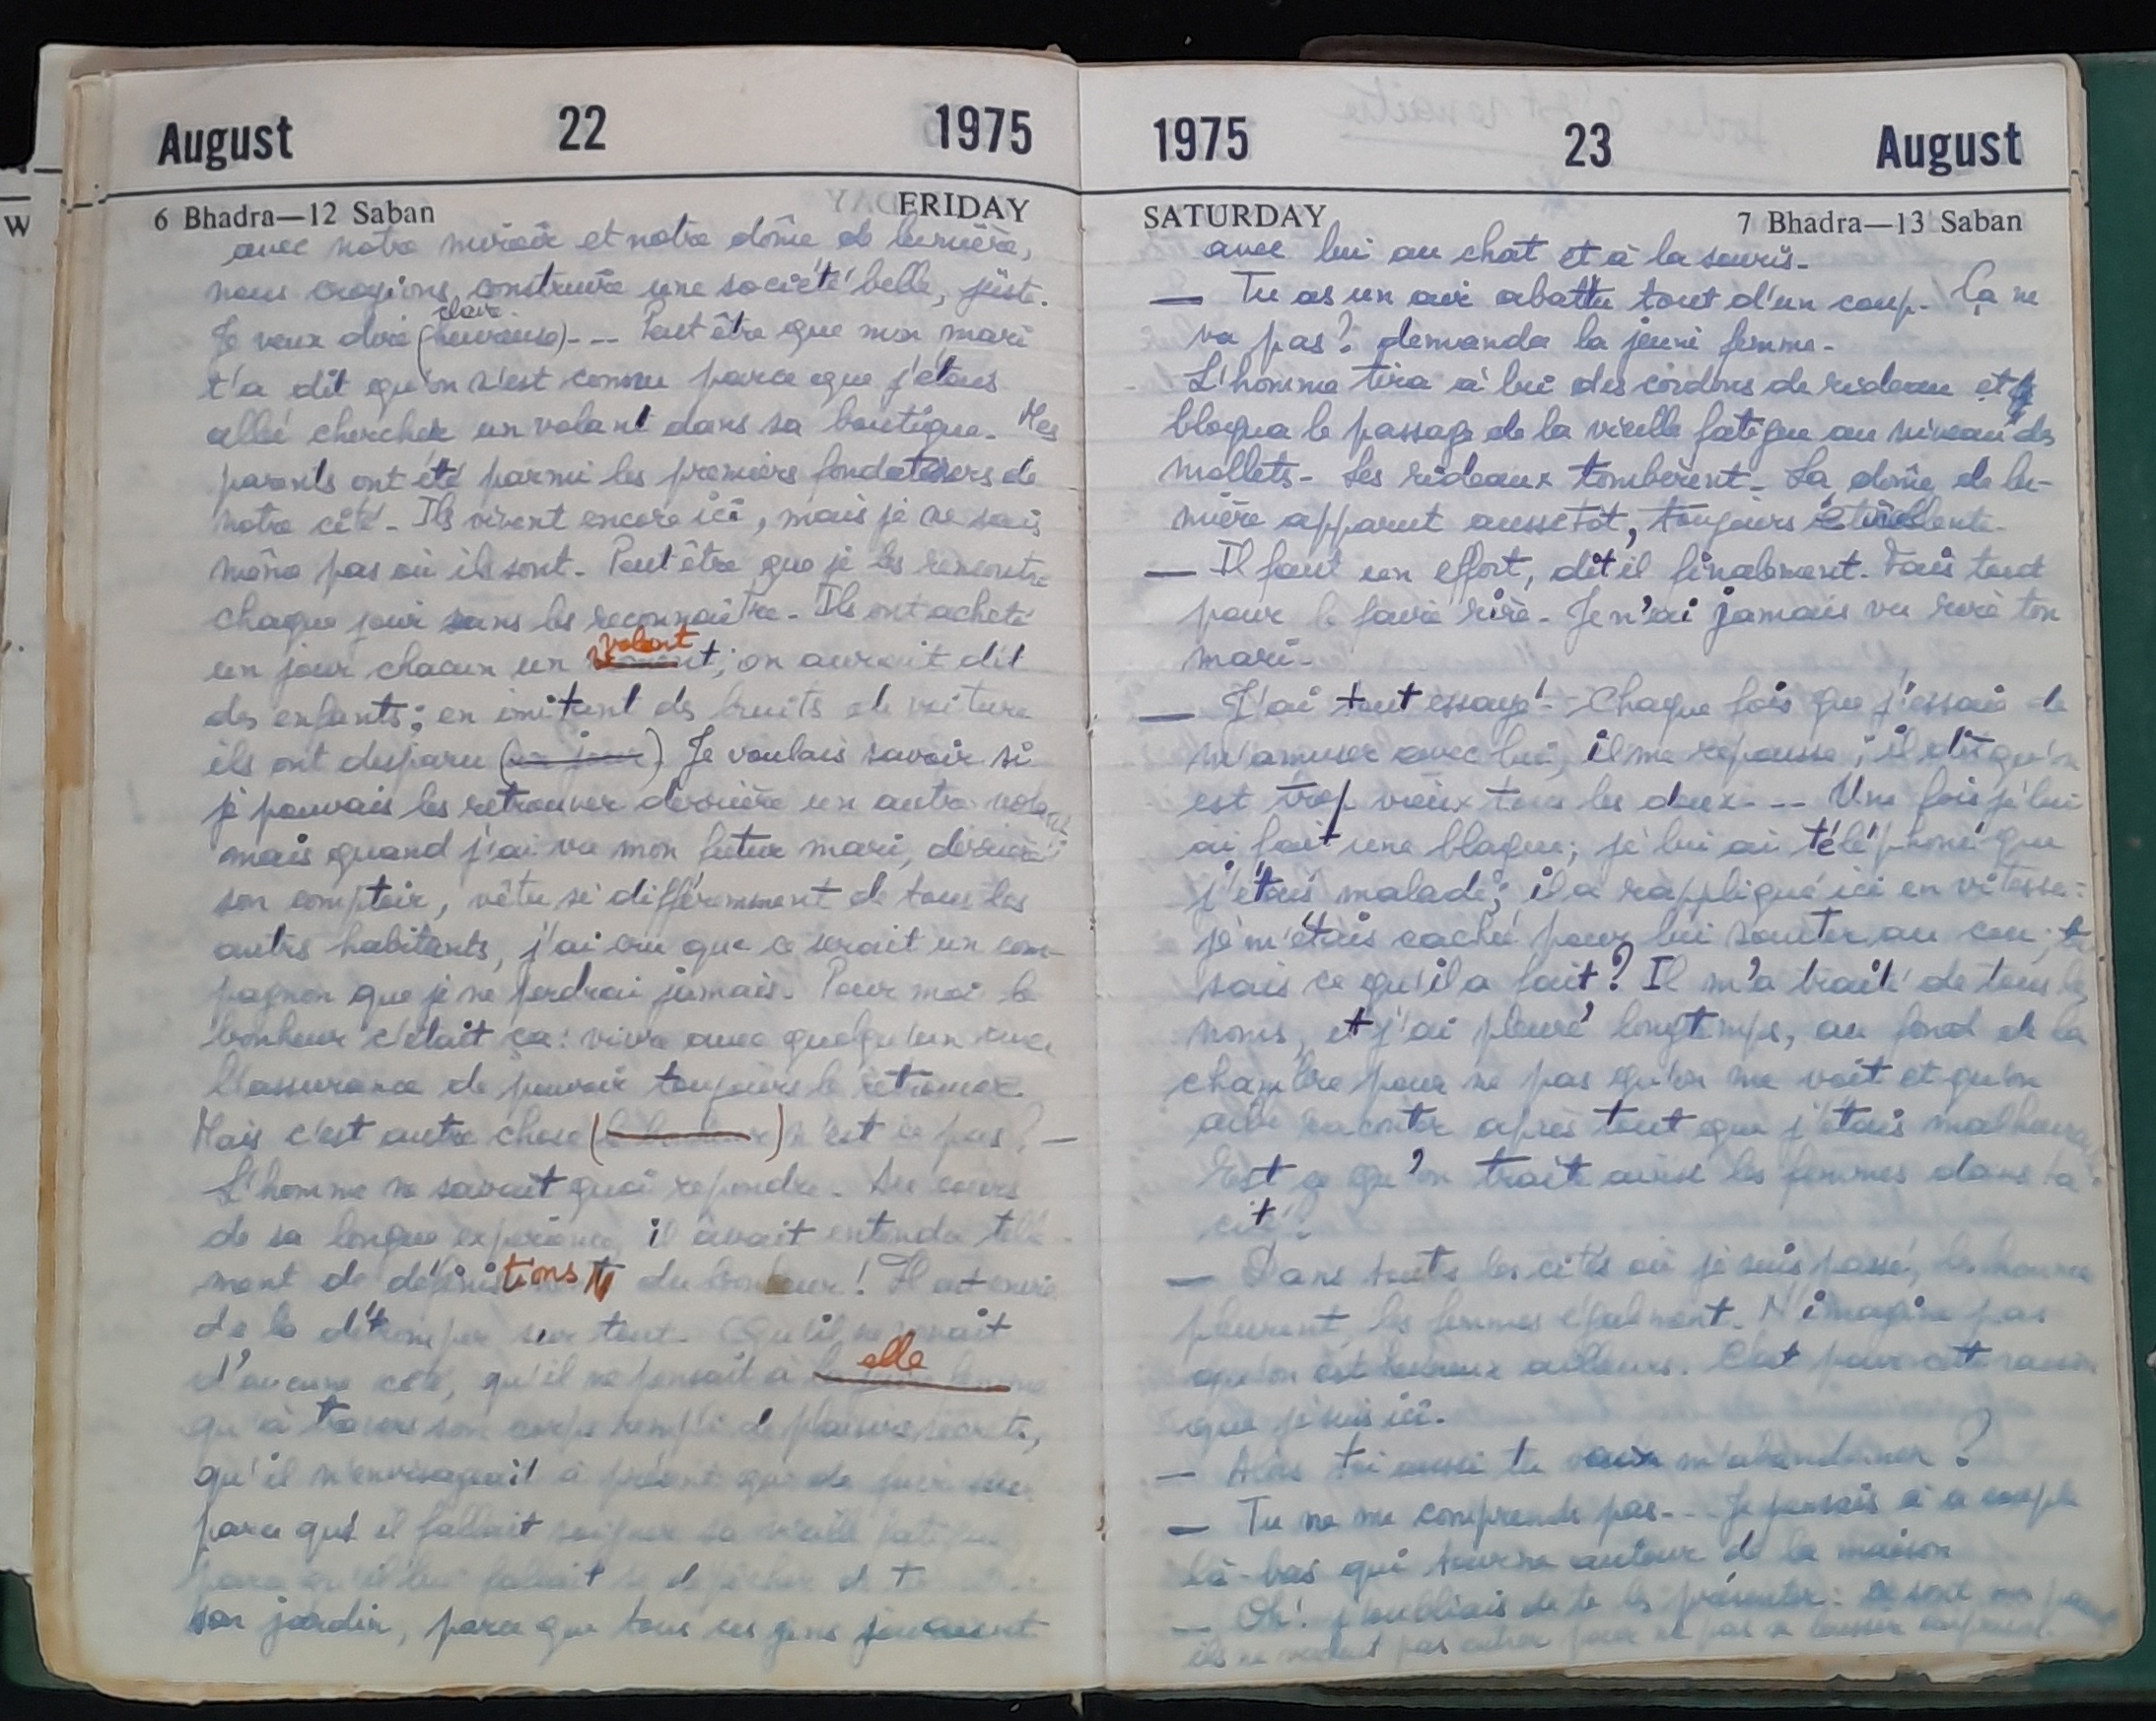 August 22 1975
6 Bhadra—12 Saban FRIDAY
avec notre miroir et notre dôme de lumière,
nous croyions construire une société belle, juste.
clair
Je veux dire (heureuse)... Peut être que mon mari
t'a dit qu'on s'est connu parce que j'étais
allé chercher un volant dans sa boutique. Mes
parents ont été parmi les premiers fondateurs de
notre cité. Ils vivent encore ici, mais je ne sais
même pas où ils sont. Peut être que je les rencontre
chaque jour sans les reconnaître. Ils ont acheté
volant
un jour chacun un ; on aurait dit
des enfants; en imitant des bruits de voiture
ils ont disparu (un jour) Je voulais savoir si
je pouvais les retrouver derrière un autre volant
mais quand j'ai vu mon futur mari, derrière
son comptoir, vêtu si différemment de tous les
autres habitants, j'ai cru que ce serait un com-
pagnon que je ne perdrai jamais. Pour moi le
bonheur c'était ça: vivre avec quelqu'un avec
l'assurance de pouvoir toujours le retrouver.
Mais c'est autre chose ( ) n'est ce pas? —
L'homme ne savait quoi répondre. Au cours
de sa longue expérience, il avait entendu telle-
ment de définitions du bonheur! Il eut envie
de la détromper sur tout. Qu'il ne venait
elle
d'aucune cité, qu'il ne pensait à la jeune femme
qu'à travers son corps rempli de plaisirs secrets,
qu'il n'envisageait à présent que de fuir
parce qu'il fallait soigner sa vieille fatigue
parce qu'il lui fallait se dépêcher de
son jardin, parce que tous ces gens jouaient
1975 23 August
SATURDAY 7 Bhadra—13 Saban
avec lui au chat et à la souris.
— Tu as un air abattu tout d'un coup. Ça ne
va pas? demanda la jeune femme.
L'homme tira à lui des cordons de rideau et
bloqua le passage de la vieille fatigue au niveau des
mollets. Les rideaux tombèrent. Le dôme de lu-
mière apparut aussitôt, toujours étincellante.
— Il faut un effort, dit il finalement. Fais tout
pour le faire rire. Je n'ai jamais vu rire ton
mari.
— J'ai tout essayé. Chaque fois que j'essaie de
m'amuser avec lui, il me repousse; il dit qu'on
est trop vieux tous les deux... Une fois je lui
ai fait une blague; je lui ai téléphoné que
j'étais malade; il a rappliqué ici en vitesse:
je m'étais caché pour lui sauter au cou; tu
sais ce qu'il a fait? Il m'a traité de tous les
noms, et j'ai pleuré longtemps, au fond de la
chambre pour ne pas qu'on me voit et qu'on
aille raconter après tout que j'étais malheureuse
Est ce qu'on traite ainsi les femmes dans ta
cité?
— Dans toutes les cités où je suis passé, les hommes
pleurent, les femmes également. N'imagine pas
qu'on est heureux ailleurs. C'est pour cette raison
que je suis ici.
— Alors toi aussi tu veux m'abandonner?
— Tu ne me comprends pas... Je pensais à ce couple
là-bas qui tourne autour de la maison
— Oh! j'oubliais de te les présenter: ce sont mes
ils ne veulent pas entrer pour ne pas se laisser